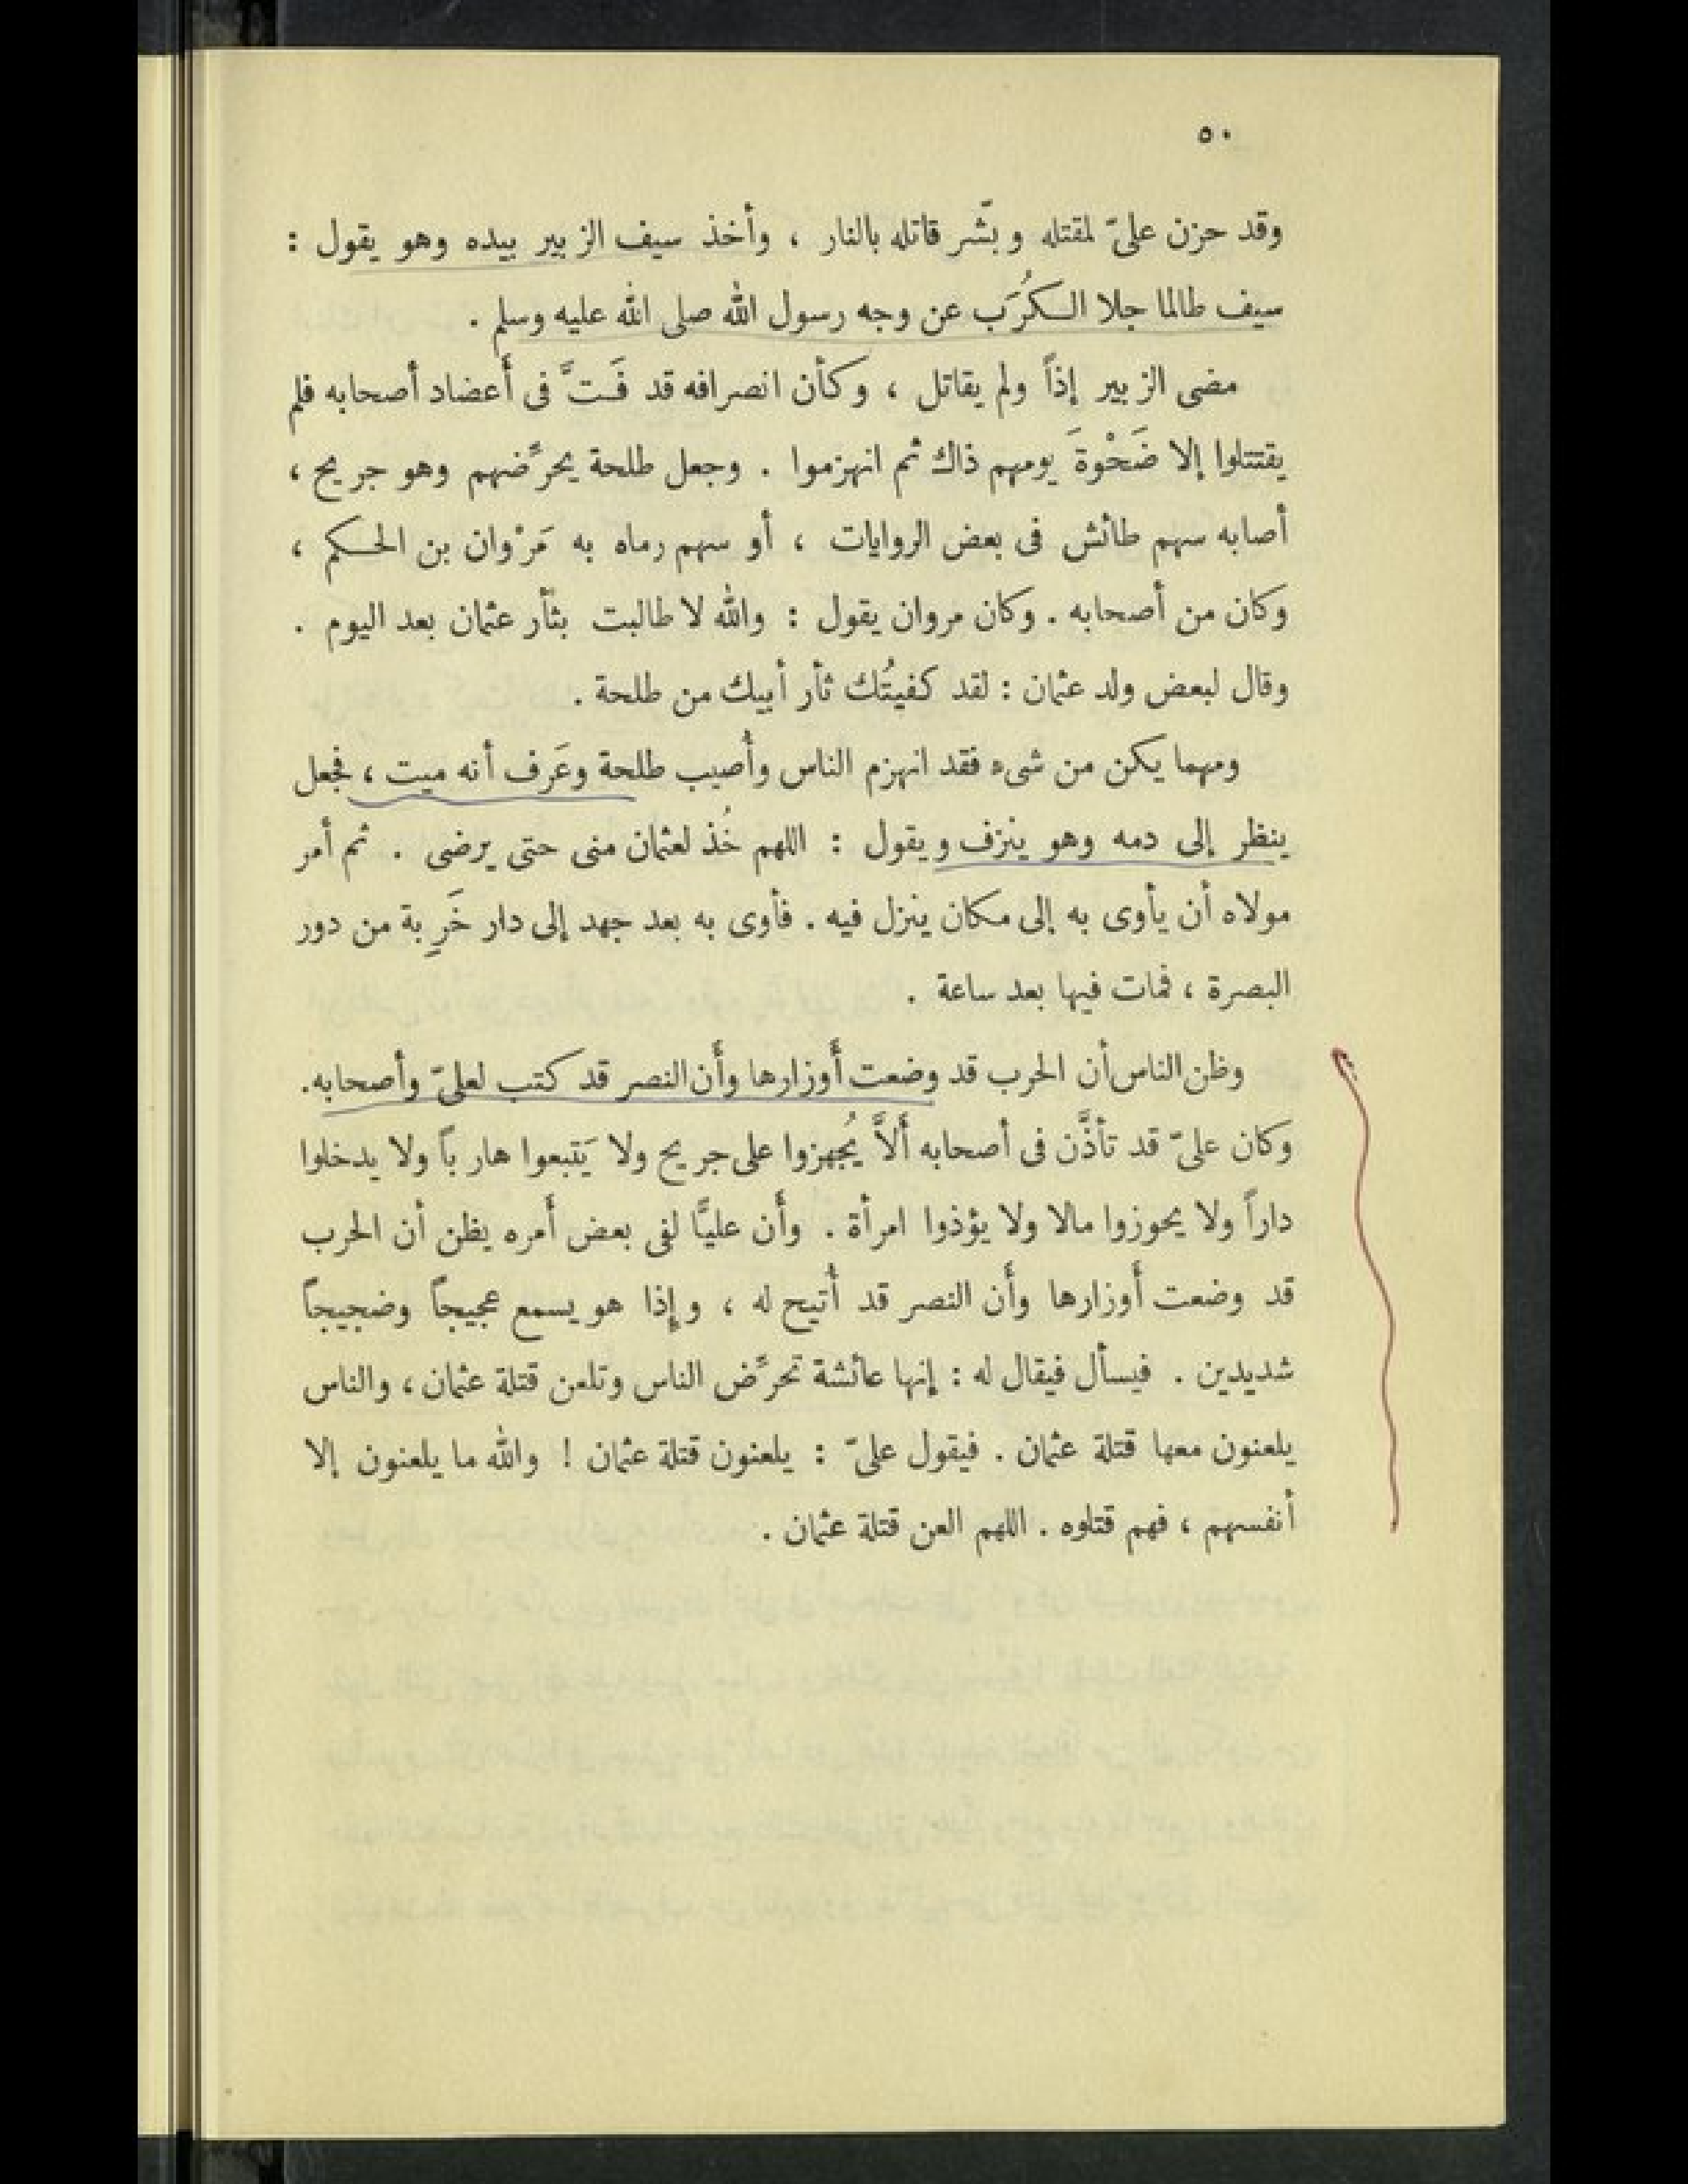 ٥٠
وقد حزن علىّ لمقتله وبشّر قاتله بالنار ، وأخذ سيف الزبير بيده وهو يقول :
سيف طالما جلا الكُرَب عن وجه رسول الله صلى الله عليه وسلم .
مضى الزبير إذاً ولم يقاتل ، وكأن انصرافه قد فَتَّ فى أعضاد أصحابه فلم
يقتتلوا إلا ضَحْوةَ يومهم ذاك ثم انهزموا . وجعل طلحة يحرِّضهم وهو جريح ،
أصابه سهم طائش فى بعض الروايات ، أو سهم رماه به مَرْوان بن الحكم ،
وكان من أصحابه . وكان مروان يقول : والله لا طالبت بثأر عثمان بعد اليوم .
وقال لبعض ولد عثمان : لقد كفيتُك ثأر أبيك من طلحة .
ومهما يكن من شىء فقد انهزم الناس وأُصيب طلحة وعَرف أنه ميت ، فجعل
ينظر إلى دمه وهو ينزف ويقول : اللهم خُذ لعثمان منى حتى يرضى . ثم أمر
مولاه أن يأوى به إلى مكان ينزل فيه . فأوى به بعد جهد إلى دار خَرِبة من دور
البصرة ، فمات فيها بعد ساعة .
وظن الناس أن الحرب قد وضعت أوزارها وأن النصر قد كتب لعلىّ وأصحابه .
وكان علىّ قد تأذَّن فى أصحابه ألاَّ يُجهزوا على جريح ولا يَتبعوا هارباً ولا يدخلوا
داراً ولا يحوزوا مالا ولا يؤذوا امرأة . وأن عليًّا لفى بعض أمره يظن أن الحرب
قد وضعت أوزارها وأن النصر قد أُتيح له ، وإذا هو يسمع عجيجاً وضجيجاً
شديدين . فيسأل فيقال له : إنها عائشة تحرِّض الناس وتلعن قتلة عثمان ، والناس
يلعنون معها قتلة عثمان . فيقول علىّ : يلعنون قتلة عثمان ! والله ما يلعنون إلا
أنفسهم ، فهم قتلوه . اللهم العن قتلة عثمان .